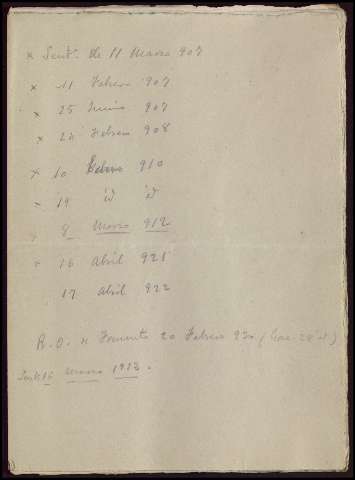 x Sentª de 11 Marzo 907
x 11 Febrero 907
x 25 Junio 907
x 22 Febrero 908
x 10 Febrero 910
x 19 id id
x 8 Marzo 912
x 16 Abril 921
17 Abril 922
R. O. Fomento 20 Febrero 920 (Gac. 28 id)
Sent 16 Marzo 1912.